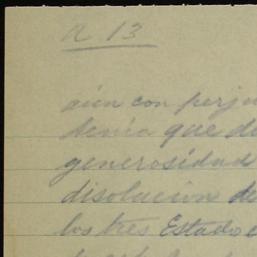 n 13
aún con perju
tenía que d
generosidad
disolución de
los tres Estado